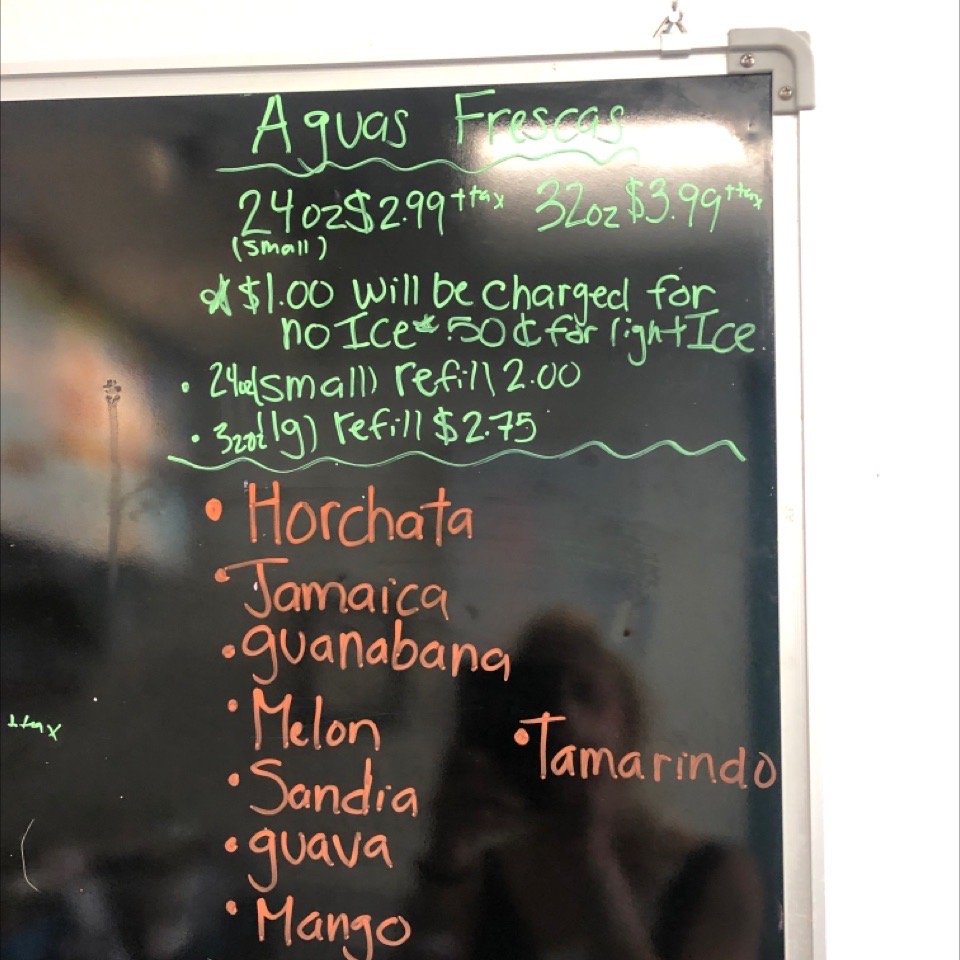 Aguas Frescas
24oz $2.99 +tax 32oz $3.99 +tax
(small)
*$1.00 will be charged for
no Ice* .50¢ for light Ice
• 24oz(small) refill 2.00
• 32oz(lg) refill $2.75
• Horchata
• Jamaica
• guanabana
• Melon
• Tamarindo
• Sandia
• guava
• Mango
+tax